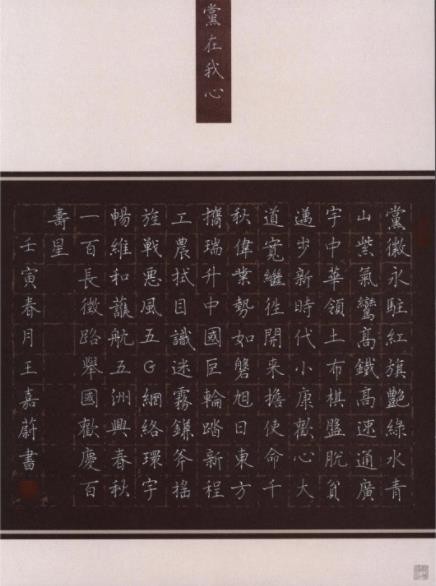 黨在我心
黨徽永駐紅旗艷綠水青
山紫氣鸞高鐵高速通廣
宇中華領土布棋盤脫貧
邁步新時代小康歡心大
道寬繼往開來擔使命千
秋偉業勢如磐旭日東方
擕瑞升中國巨輪踏新程
工農拭目識迷霧鎌斧搖
旌戰惡風五G網絡環宇
暢維和護航五洲興春秋
一百長徵路舉國歡慶百
壽星
壬寅春月王嘉蔚書